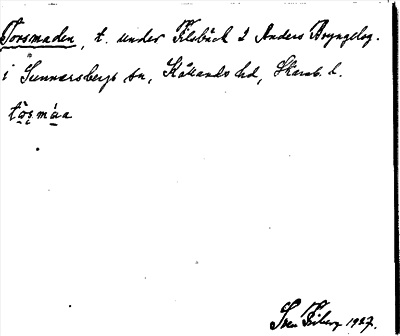 Torsmaden, t. under Filsbäck 2 Anders Bryngelsg.
i Sunnersbergs sn, Kållands hd, Skarab. l.
tȯṣmáa
Sven Friberg 1927.